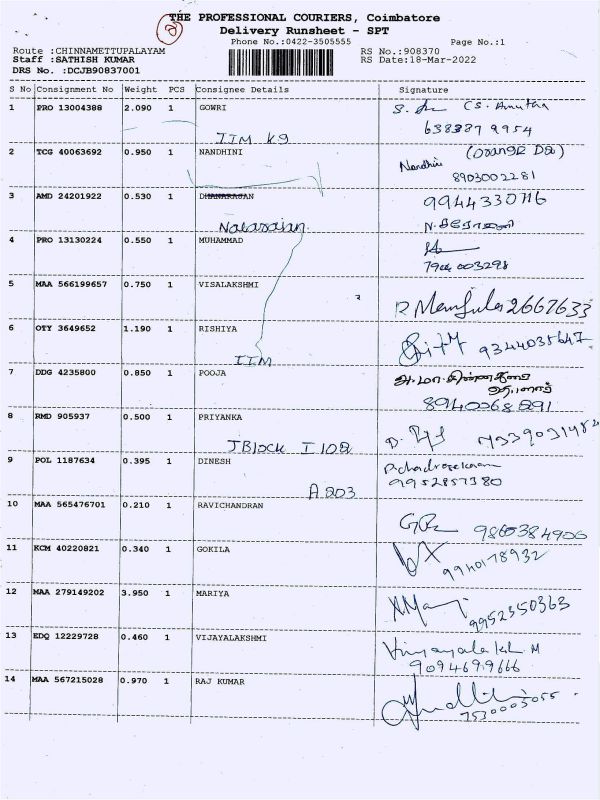 THE PROFESSIONAL COURIERS, Coimbatore
Delivery Runsheet - SPT
Phone No.:0422-3505555 Page No.:1
Route :CHINNAMETTUPALAYAM RS No.:908370
Staff :SATHISH KUMAR RS Date:18-Mar-2022
DRS No. :DCJB90837001
S No Consignment No Weight PCS Consignee Details Signature
1 PRO 13004388 2.090 1 GOWRI
2 TCG 40063692 0.950 1 NANDHINI
Nandhini 8903002281
3 AMD 24201922 0.530 1 DHANARAJAN
Natarajan
4 PRO 13130224 0.550 1 MUHAMMAD
5 MAA 566199657 0.750 1 VISALAKSHMI
2667633
6 OTY 3649652 1.190 1 RISHIYA
IIM 9344035647
7 DDG 4235800 0.850 1 POOJA
8 RMD 905937 0.500 1 PRIYANKA
J Block I 102
9 POL 1187634 0.395 1 DINESH
9952857380
A 203
10 MAA 565476701 0.210 1 RAVICHANDRAN
9865384906
11 KCM 40220821 0.340 1 GOKILA
9940178932
12 MAA 279149202 3.950 1 MARIYA
9952350363
13 EDQ 12229728 0.460 1 VIJAYALAKSHMI
9094699666
14 MAA 567215028 0.970 1 RAJ KUMAR
7530003055